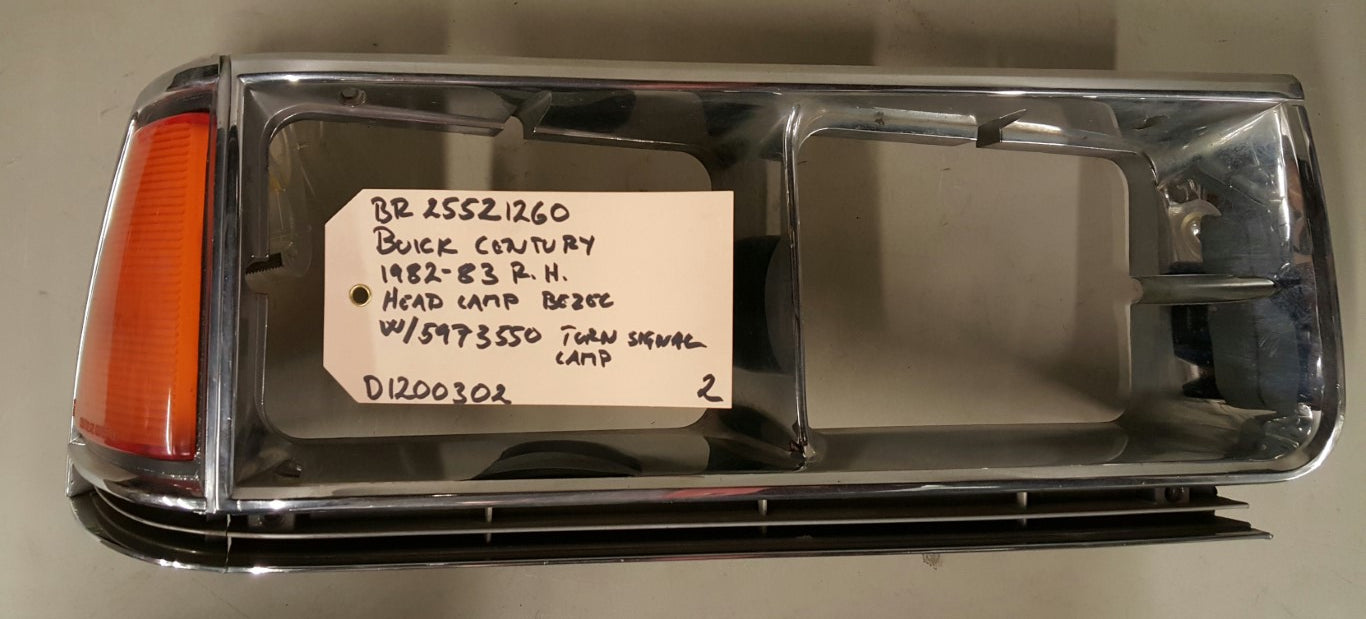 BR 25521260
BUICK CENTURY
1982-83 R.H.
HEAD LAMP BEZEL
W/5973550 TURN SIGNAL
LAMP
D1200302 2